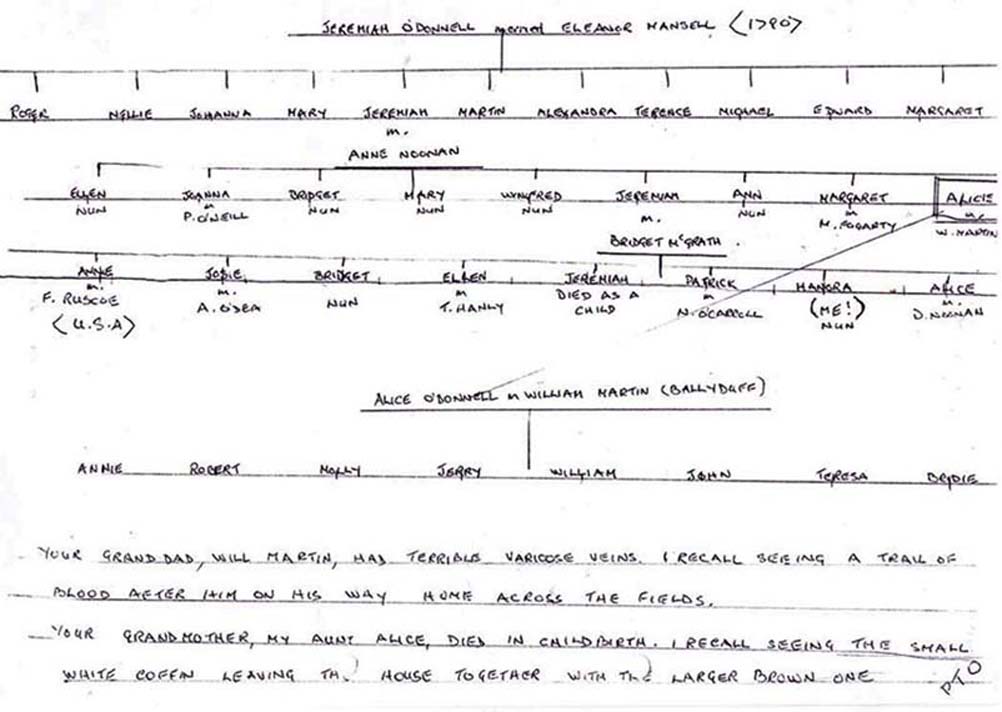 JEREMIAH O'DONNELL married ELEANOR MANSELL (1790)
ROGER NELLIE JOHANNA MARY JEREMIAH MARTIN ALEXANDRA TERENCE MICHAEL EDWARD MARGARET
m.
ANNE NOONAN
ELLEN JOANNA BRIDGET MARY WINFRED JEREMIAH ANN MARGARET ALICE
NUN m NUN NUN NUN m. NUN m m.
P. O'NEILL M. FOGARTY W. MARTIN
BRIDGET McGRATH
ANNIE JOSIE BRIDGET ELLEN JEREMIAH PATRICK HANORA ALICE
m. m. NUN m DIED AS A m (ME!) m.
F. RUSCOE A. O'DEA T. HANLY CHILD N. O'CARROLL NUN D. NOONAN
(U.S.A)
ALICE O'DONNELL m WILLIAM MARTIN (BALLYDUFF)
ANNIE ROBERT MOLLY JERRY WILLIAM JOHN TERESA BRIDIE
YOUR GRANDDAD, WILL MARTIN, HAD TERRIBLE VARICOSE VEINS. I RECALL SEEING A TRAIL OF
BLOOD AFTER HIM ON HIS WAY HOME ACROSS THE FIELDS.
YOUR GRANDMOTHER, MY AUNT ALICE, DIED IN CHILDBIRTH. I RECALL SEEING THE SMALL
WHITE COFFIN LEAVING THE HOUSE TOGETHER WITH THE LARGER BROWN ONE
PTO